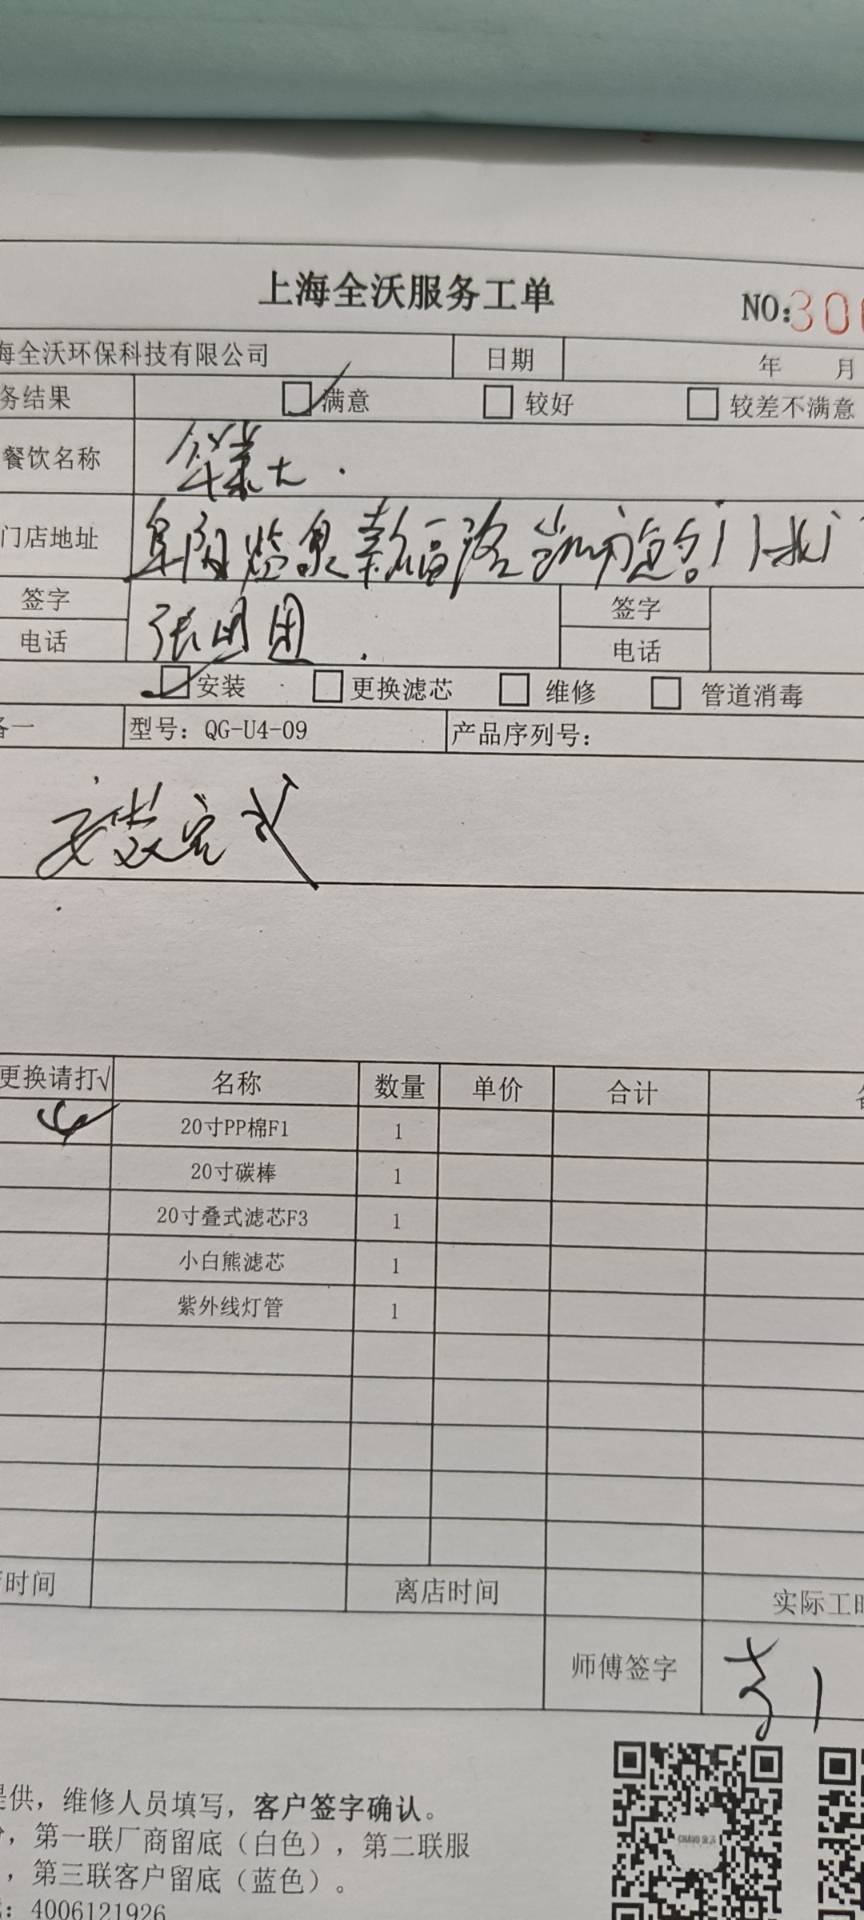 上海全沃服务工单
NO:300
海全沃环保科技有限公司 日期 年 月
务结果 满意 较好 较差不满意
餐饮名称 华莱士
门店地址
签字 张团团 签字
电话 电话
安装 更换滤芯 维修 管道消毒
备一 型号: QG-U4-09 产品序列号:
安装完成
更换请打√ 名称 数量 单价 合计
20寸PP棉F1 1
20寸碳棒 1
20寸叠式滤芯F3 1
小白熊滤芯 1
紫外线灯管 1
时间 离店时间 实际工时
师傅签字
提供, 维修人员填写, 客户签字确认。
, 第一联厂商留底 (白色), 第二联服
, 第三联客户留底 (蓝色)。
: 4006121926